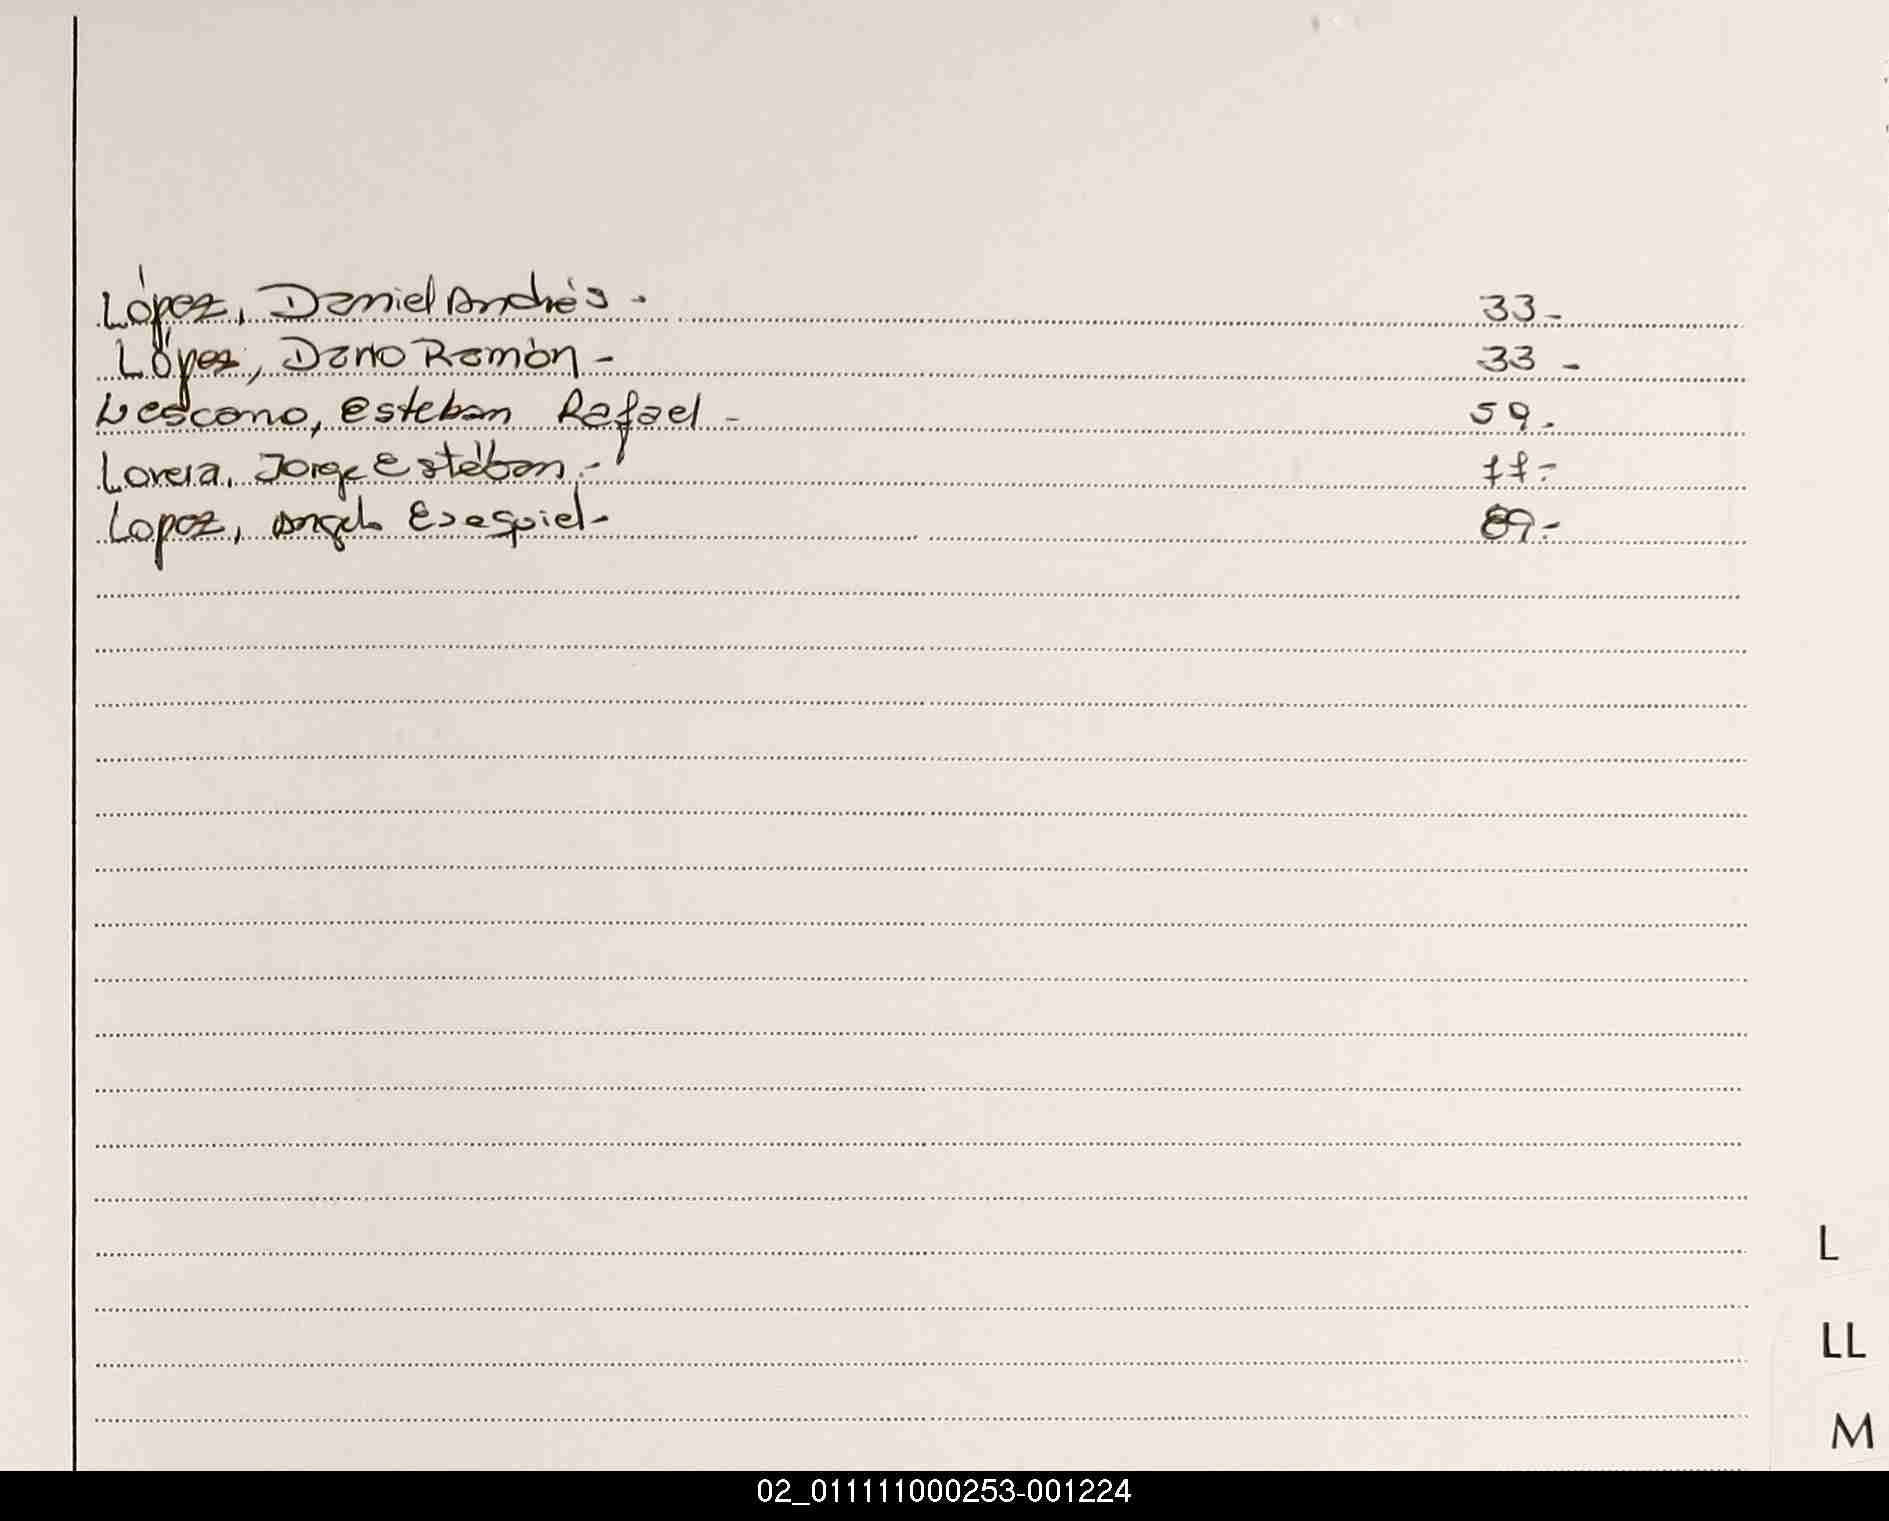 López, Daniel Andrés - 33-
López, Dario Ramón - 33 -
Lescano, Esteban Rafael - 59.
Jorge Esteban - 77-
Lopez, Angelo Esequiel - 89-
L
LL
M
02_011111000253-001224